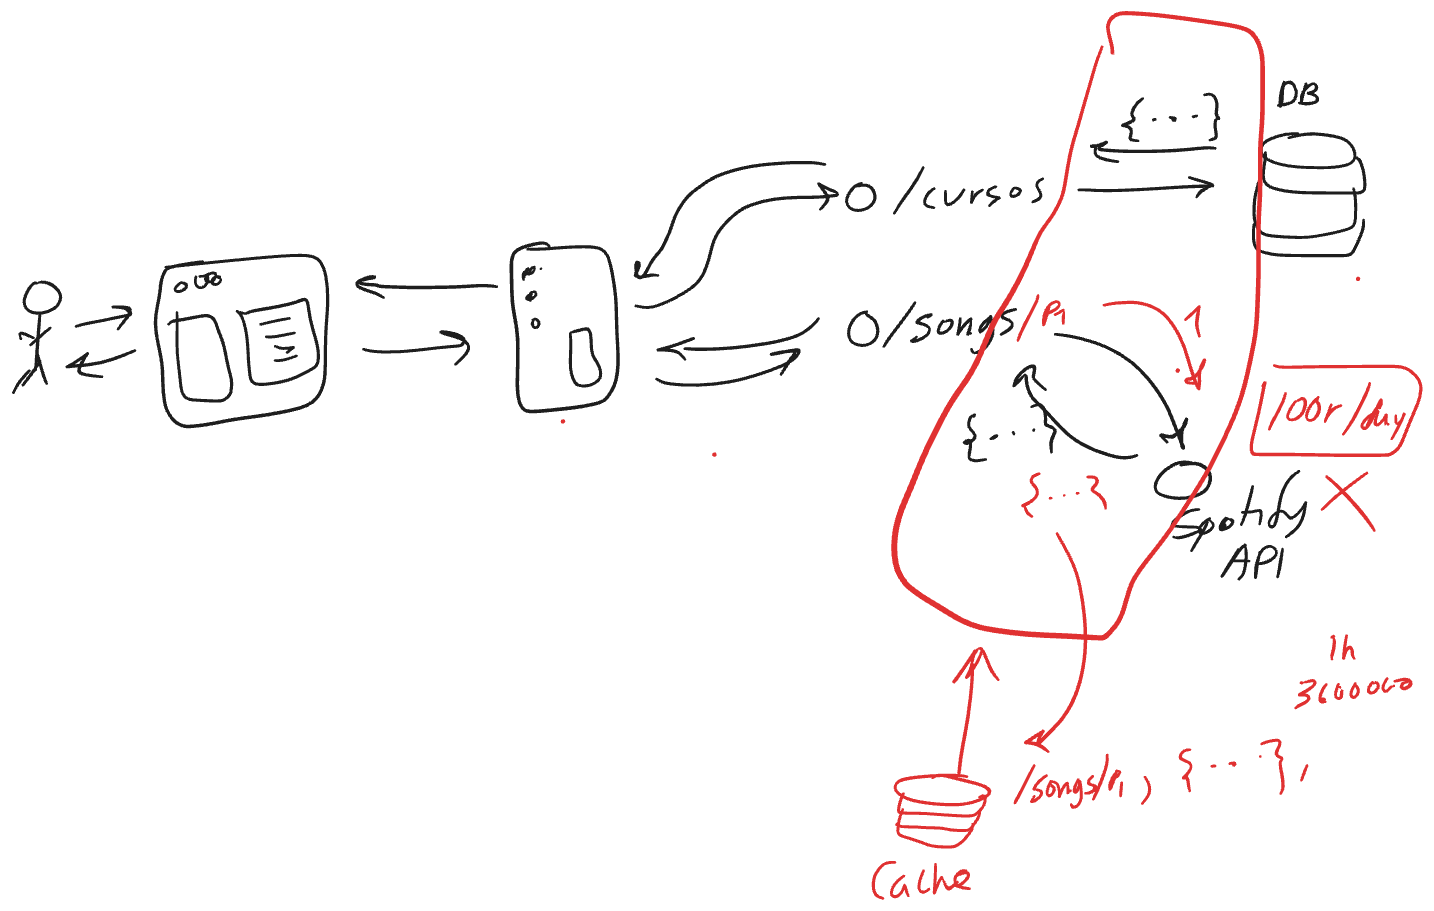 {...}
DB
/cursos
/songs/P1
1
100r/day
{...}
{...}
Spotify
API
1h
3600000
/songs/P1, {...},
Cache